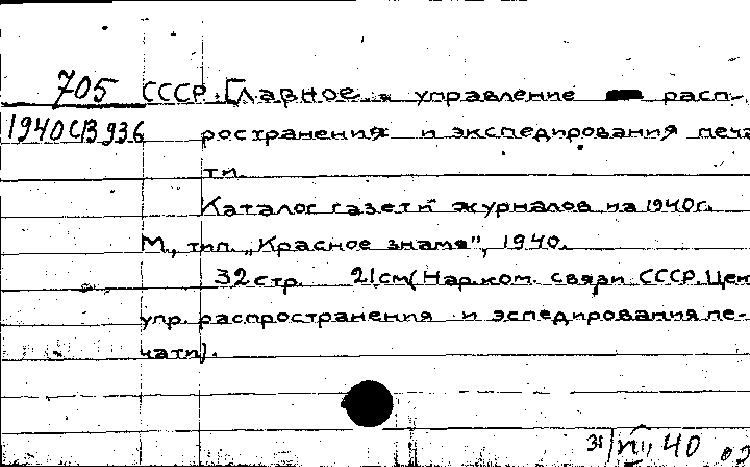 705 СССР. Главное управление расп-
1940 СВ 936 ространения и экспедирования печа
ти.
Каталог газет и журналов на 1940г.
М., тип. „Красное знамя", 1940.
32 стр. 21 см (Нар. ком. связи СССР. Цен
упр. распространения и эспедирования пе-
чати).
31/VII, 40